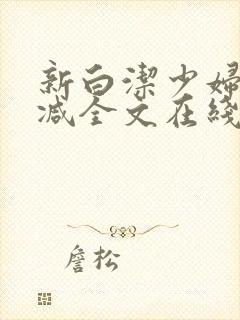 新白潔少婦
减全文在綫
詹松